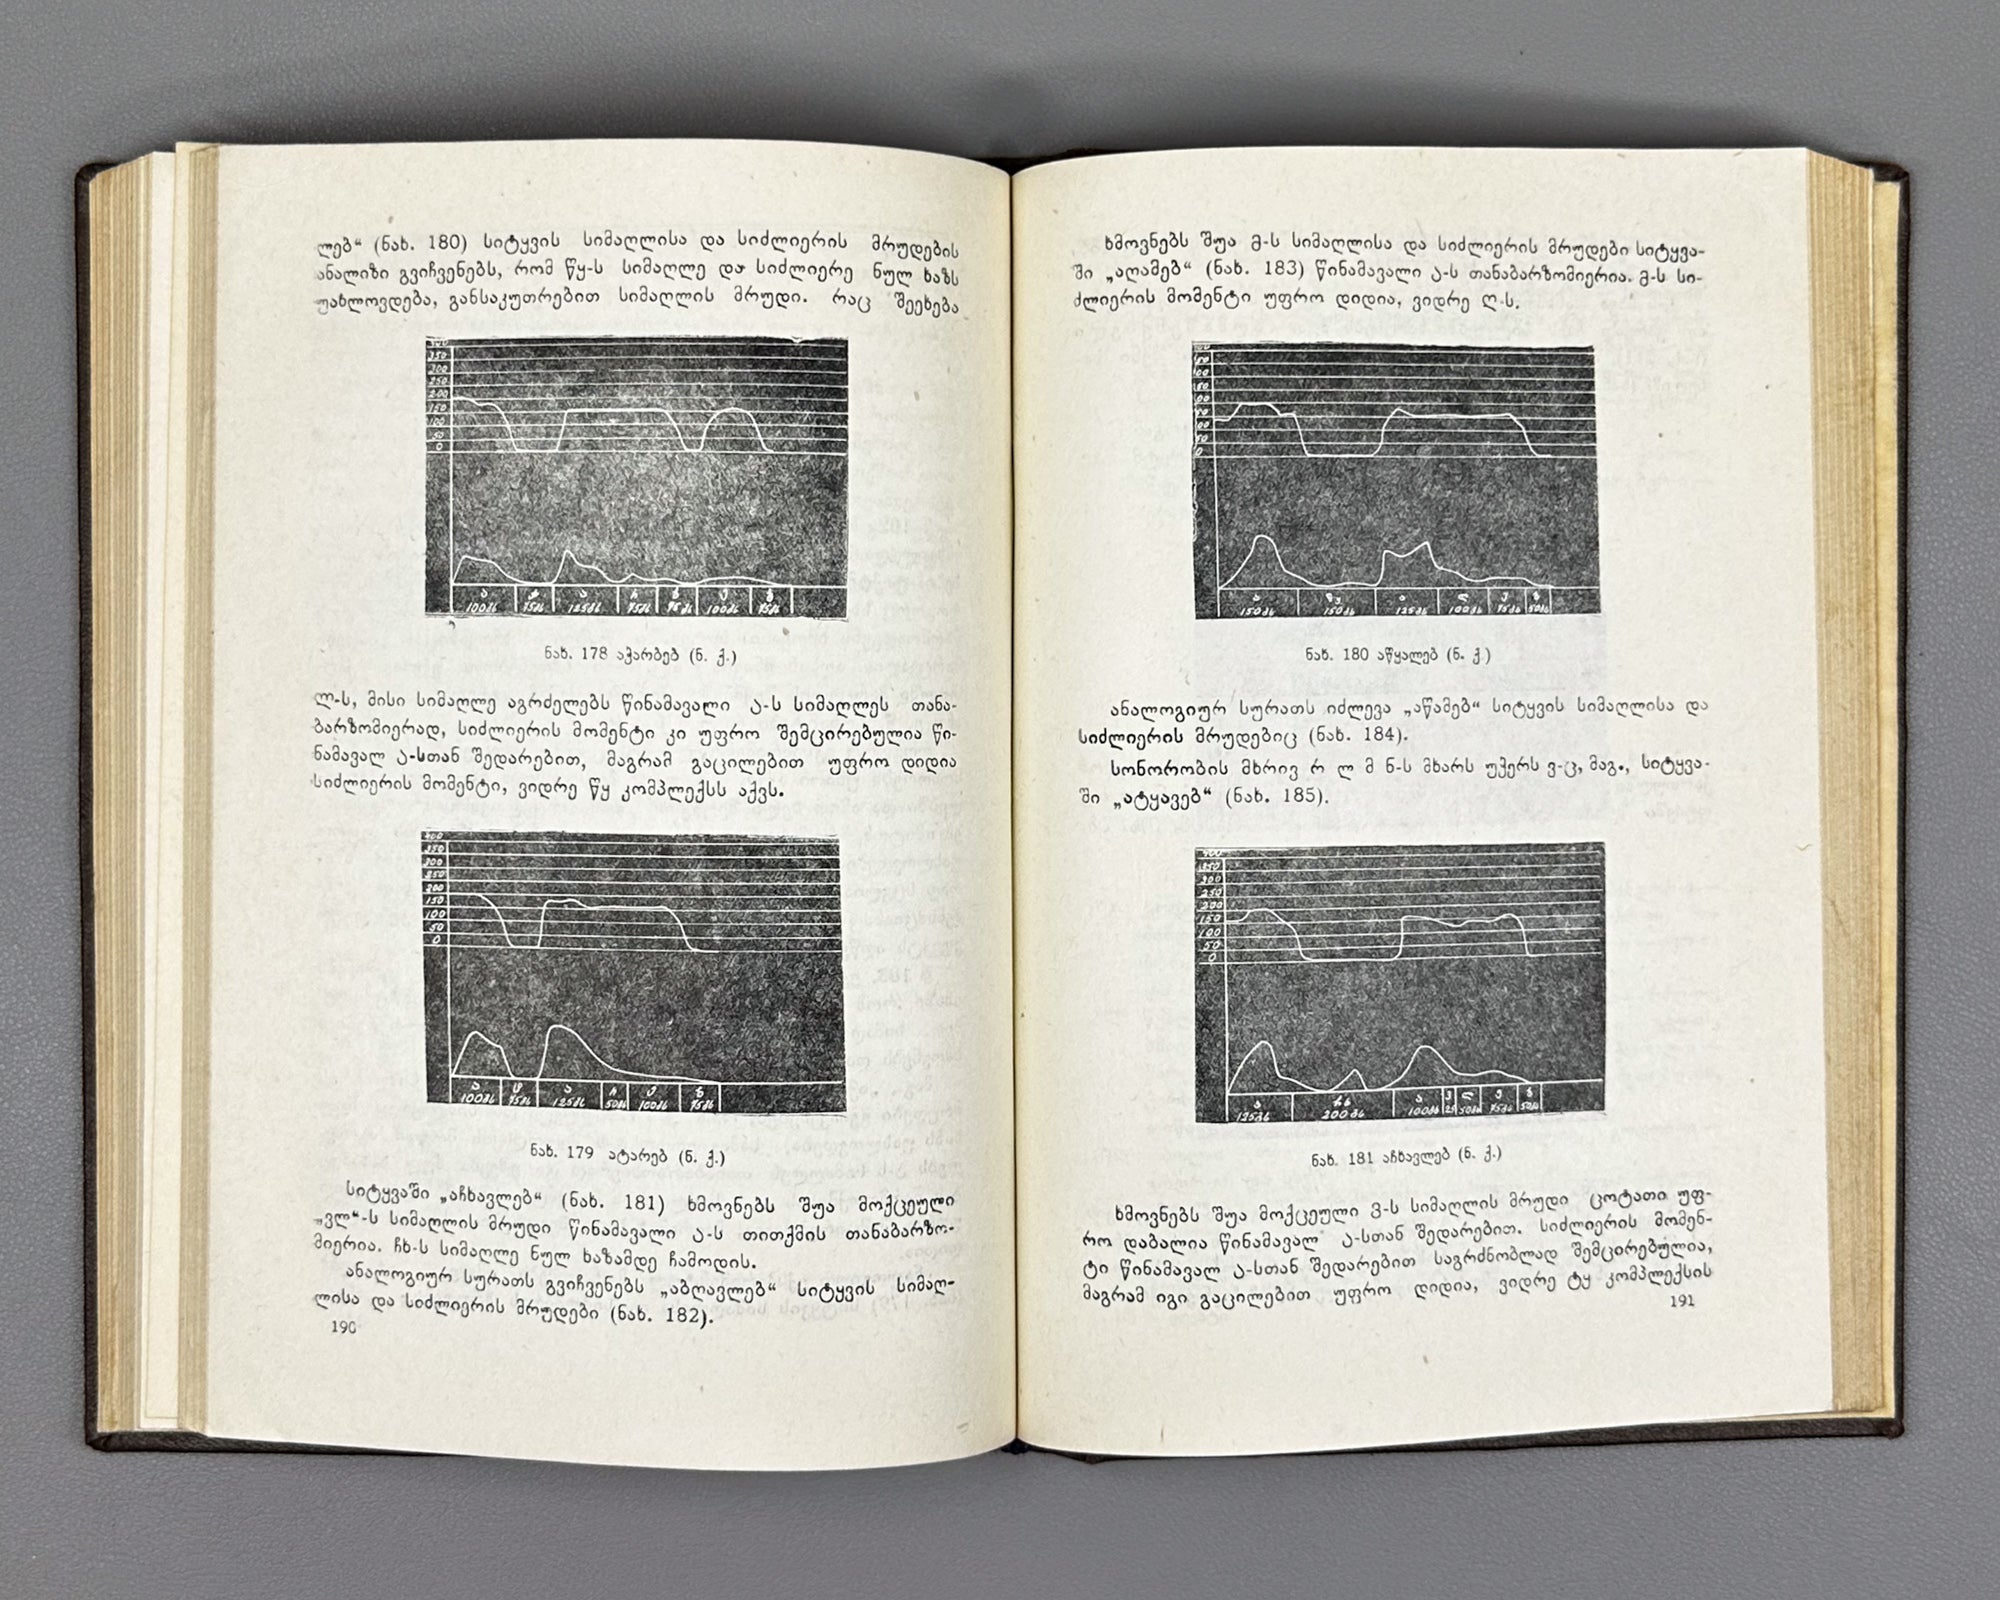 ლებ“ (ნახ. 180) სიტყვის სიმაღლისა და სიძლიერის მრუდების
ანალიზი გვიჩვენებს, რომ წყ-ს სიმაღლე და სიძლიერე ნულ ხაზს
უახლოვდება, განსაკუთრებით სიმაღლის მრუდი. რაც შეეხება
350
300
250
200
150
100
50
0
ა ჭ ა რ ბ ე ბ
100მს 75მს 125მს 75მს 75მს 100მს 75მს
ნახ. 178 აჭარბებ (ნ. ქ.)
ლ-ს, მისი სიმაღლე აგრძელებს წინამავალი ა-ს სიმაღლეს თანა-
ბარზომიერად, სიძლიერის მომენტი კი უფრო შემცირებულია წი-
ნამავალ ა-სთან შედარებით, მაგრამ გაცილებით უფრო დიდია
სიძლიერის მომენტი, ვიდრე წყ კომპლექსს აქვს.
400
350
300
250
200
150
100
50
0
ა ტ ა რ ე ბ
100მს 75მს 125მს 50მს 100მს 75მს
ნახ. 179 ატარებ (ნ. ქ.)
სიტყვაში „აჩხავლებ“ (ნახ. 181) ხმოვნებს შუა მოქცეული
„ვლ“-ს სიმაღლის მრუდი წინამავალი ა-ს თითქმის თანაბარზო-
მიერია. ჩხ-ს სიმაღლე ნულ ხაზამდე ჩამოდის.
ანალოგიურ სურათს გვიჩვენებს „აბღავლებ“ სიტყვის სიმაღ-
ლისა და სიძლიერის მრუდები (ნახ. 182).
190
ხმოვნებს შუა მ-ს სიმაღლისა და სიძლიერის მრუდები სიტყვა-
ში „აღამებ“ (ნახ. 183) წინამავალი ა-ს თანაბარზომიერია. მ-ს სი-
ძლიერის მომენტი უფრო დიდია, ვიდრე ღ-ს.
ა წყ ა ლ ე ბ
150მს 150მს 125მს 100მს 75მს 50მს
ნახ. 180 აწყალებ (ნ. ქ.)
ანალოგიურ სურათს იძლევა „აწამებ“ სიტყვის სიმაღლისა და
სიძლიერის მრუდებიც (ნახ. 184).
სონორობის მხრივ რ ლ მ ნ-ს მხარს უჭერს ვ-ც, მაგ., სიტყვა-
ში „ატყავებ“ (ნახ. 185).
400
350
300
250
200
150
100
50
0
ა ჩხ ა ვ ლ ე ბ
125მს 200მს 100მს 25 50მს 75მს 50მს
ნახ. 181 აჩხავლებ (ნ. ქ.)
ხმოვნებს შუა მოქცეული ვ-ს სიმაღლის მრუდი ცოტათი უფ-
რო დაბალია წინამავალ ა-სთან შედარებით. სიძლიერის მომენ-
ტი წინამავალ ა-სთან შედარებით საგრძნობლად შემცირებულია,
მაგრამ იგი გაცილებით უფრო დიდია, ვიდრე ტყ კომპლექსის
191